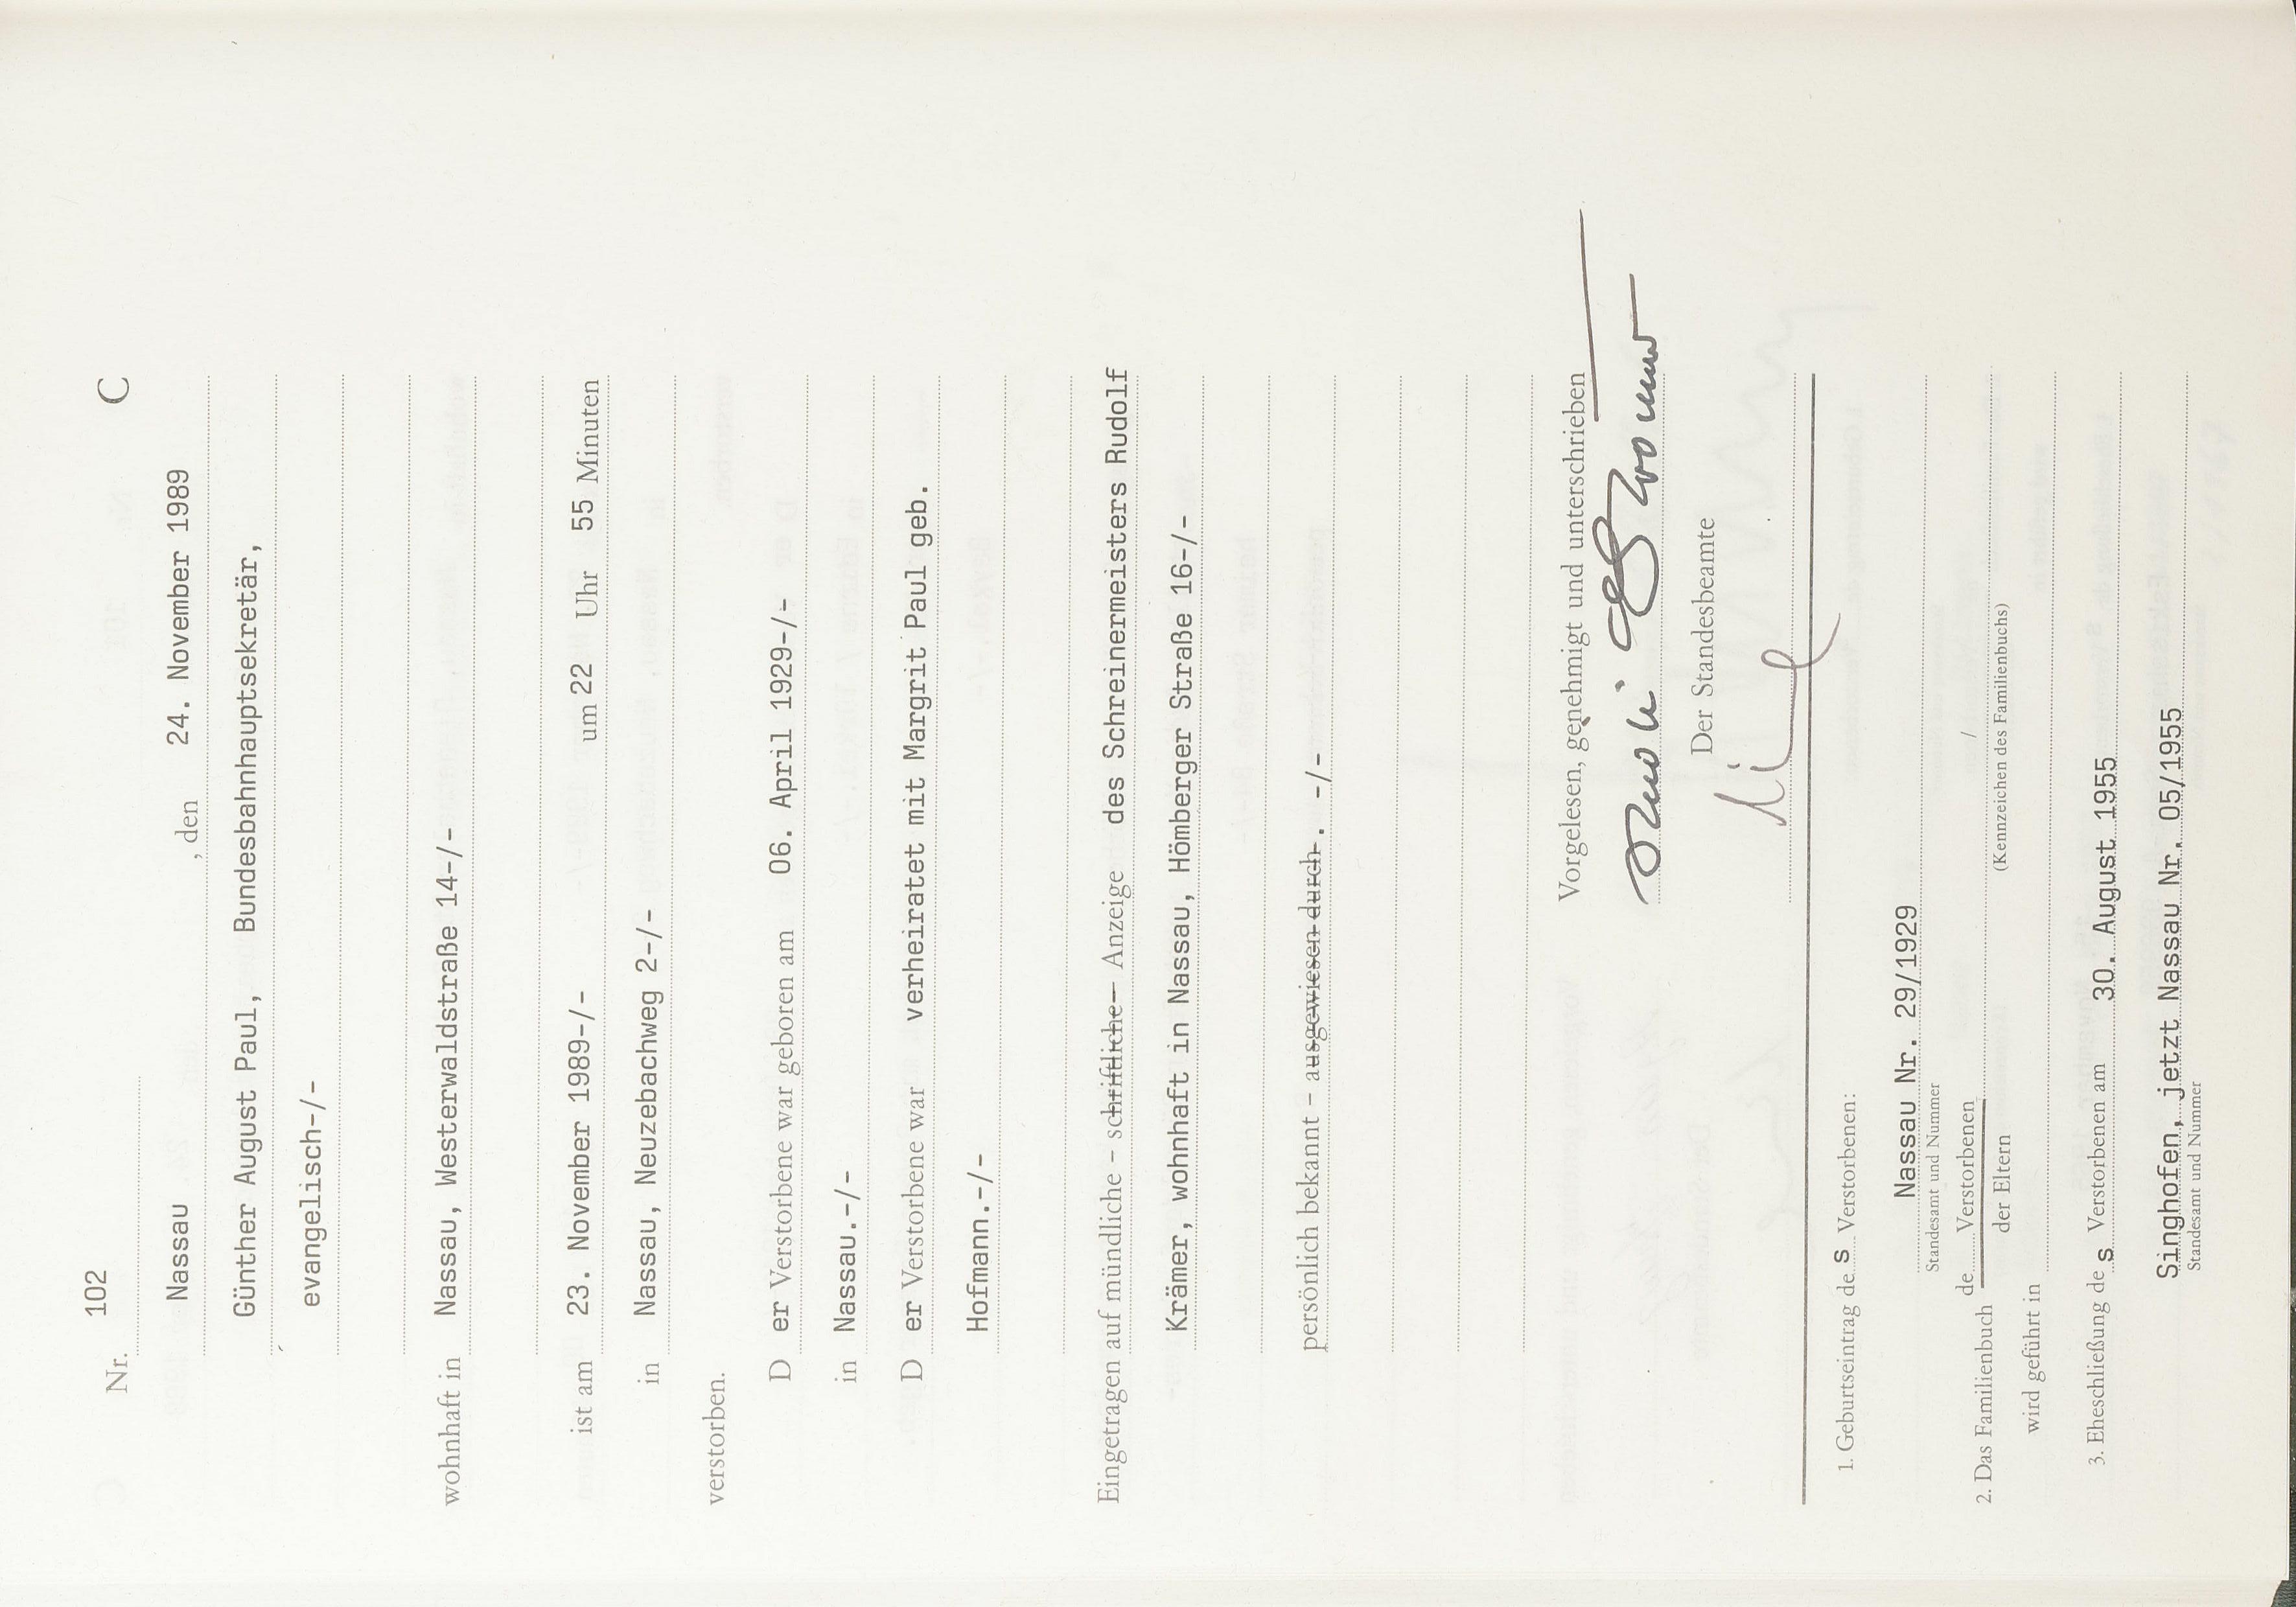 C
Nr. 102
Nassau , den 24. November 1989
Günther August Paul, Bundesbahnhauptsekretär,
evangelisch-/-
wohnhaft in Nassau, Westerwaldstraße 14-/-
ist am 23. November 1989-/- um 22 Uhr 55 Minuten
in Nassau, Neuzebachweg 2-/-
verstorben.
D er Verstorbene war geboren am 06. April 1929-/-
in Nassau.-/-
D er Verstorbene war verheiratet mit Margrit Paul geb.
Hofmann.-/-
Eingetragen auf mündliche – schriftliche – Anzeige des Schreinermeisters Rudolf
Krämer, wohnhaft in Nassau, Hömberger Straße 16-/-
persönlich bekannt – ausgewiesen durch . -/-
Vorgelesen, genehmigt und unterschrieben
Der Standesbeamte
1. Geburtseintrag de s Verstorbenen:
Nassau Nr. 29/1929
Standesamt und Nummer
2. Das Familienbuch de Verstorbenen /
der Eltern (Kennzeichen des Familienbuchs)
wird geführt in
3. Eheschließung de s Verstorbenen am 30. August 1955
Singhofen, jetzt Nassau Nr. 05/1955
Standesamt und Nummer